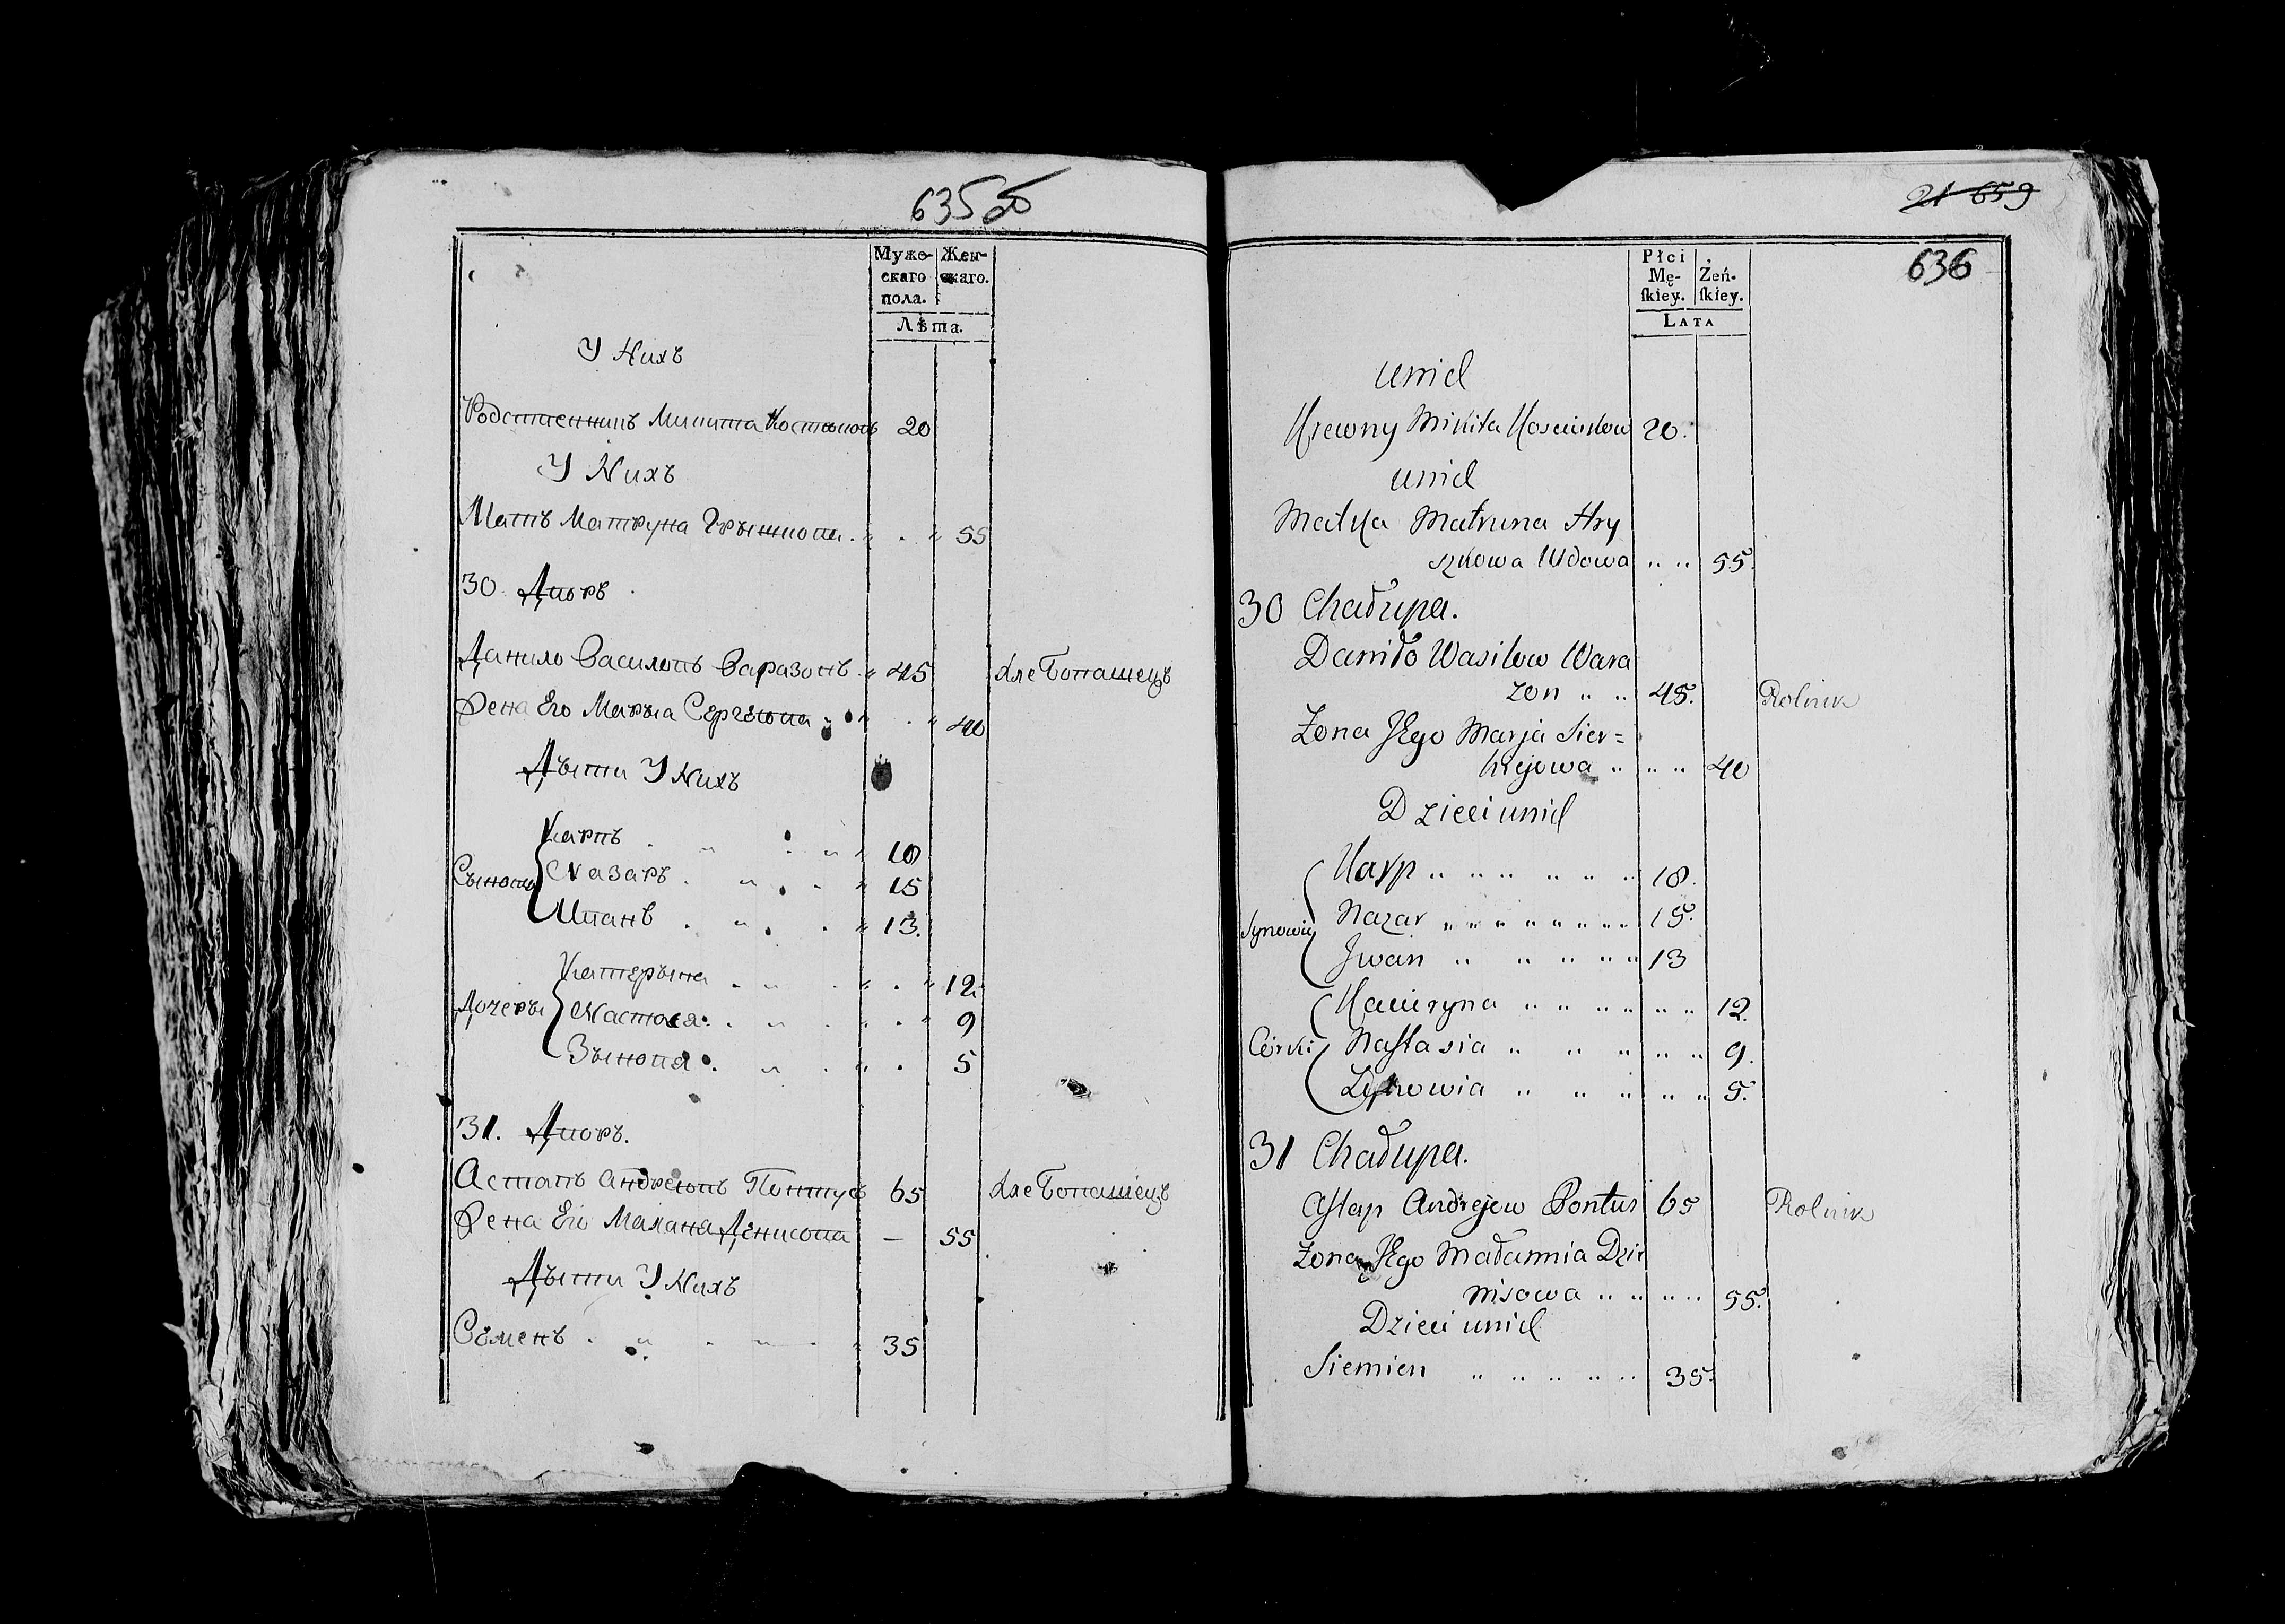 635 об
Муже- Жен-
скаго скаго.
пола.
Лѣта.
У Нихъ
Родственникъ Микита Костюковъ 20
У Нихъ
Мать Матруна Грышкова 55
30 Дворъ
Данило Василовъ Варазонъ 45 Хлебопашецъ
Жена Его Марыя Сергеюва 40
Дѣти У Нихъ
Карпъ 18
Сынови Назаръ 15
Иванъ 13.
Катерына 12.
Дочеры Настася 9
Зыновя 5
31. Дворъ.
Астапъ Андреювъ Понтусъ 65 Хлебопашецъ
Жена Его Малана Денисова — 55
Дѣти У Нихъ
Семенъ 35
21 659
636
Płci
Mę- Żeń-
ſkiey. ſkiey.
LATA
unich
Krewny Mikita 20.
unich
Matka Matruna Hry
szkowa Wdowa 55.
30 Chałupa.
Daniło Wasilow Wara
zon 45. Rolnik
Zona JEgo Marja Sier=
hiejowa 40
Dzieci unich
Karp 18.
Synowie Nazar 15.
Jwan 13
Kacieryna 12.
Córki Nastasia 9.
Zynowia 5.
31 Chałupa.
Astap Andrejew Pontus 65 Rolnik
Zona JEgo Małannia Dzie
nisowa 55.
Dzieci unich
Siemien 35.